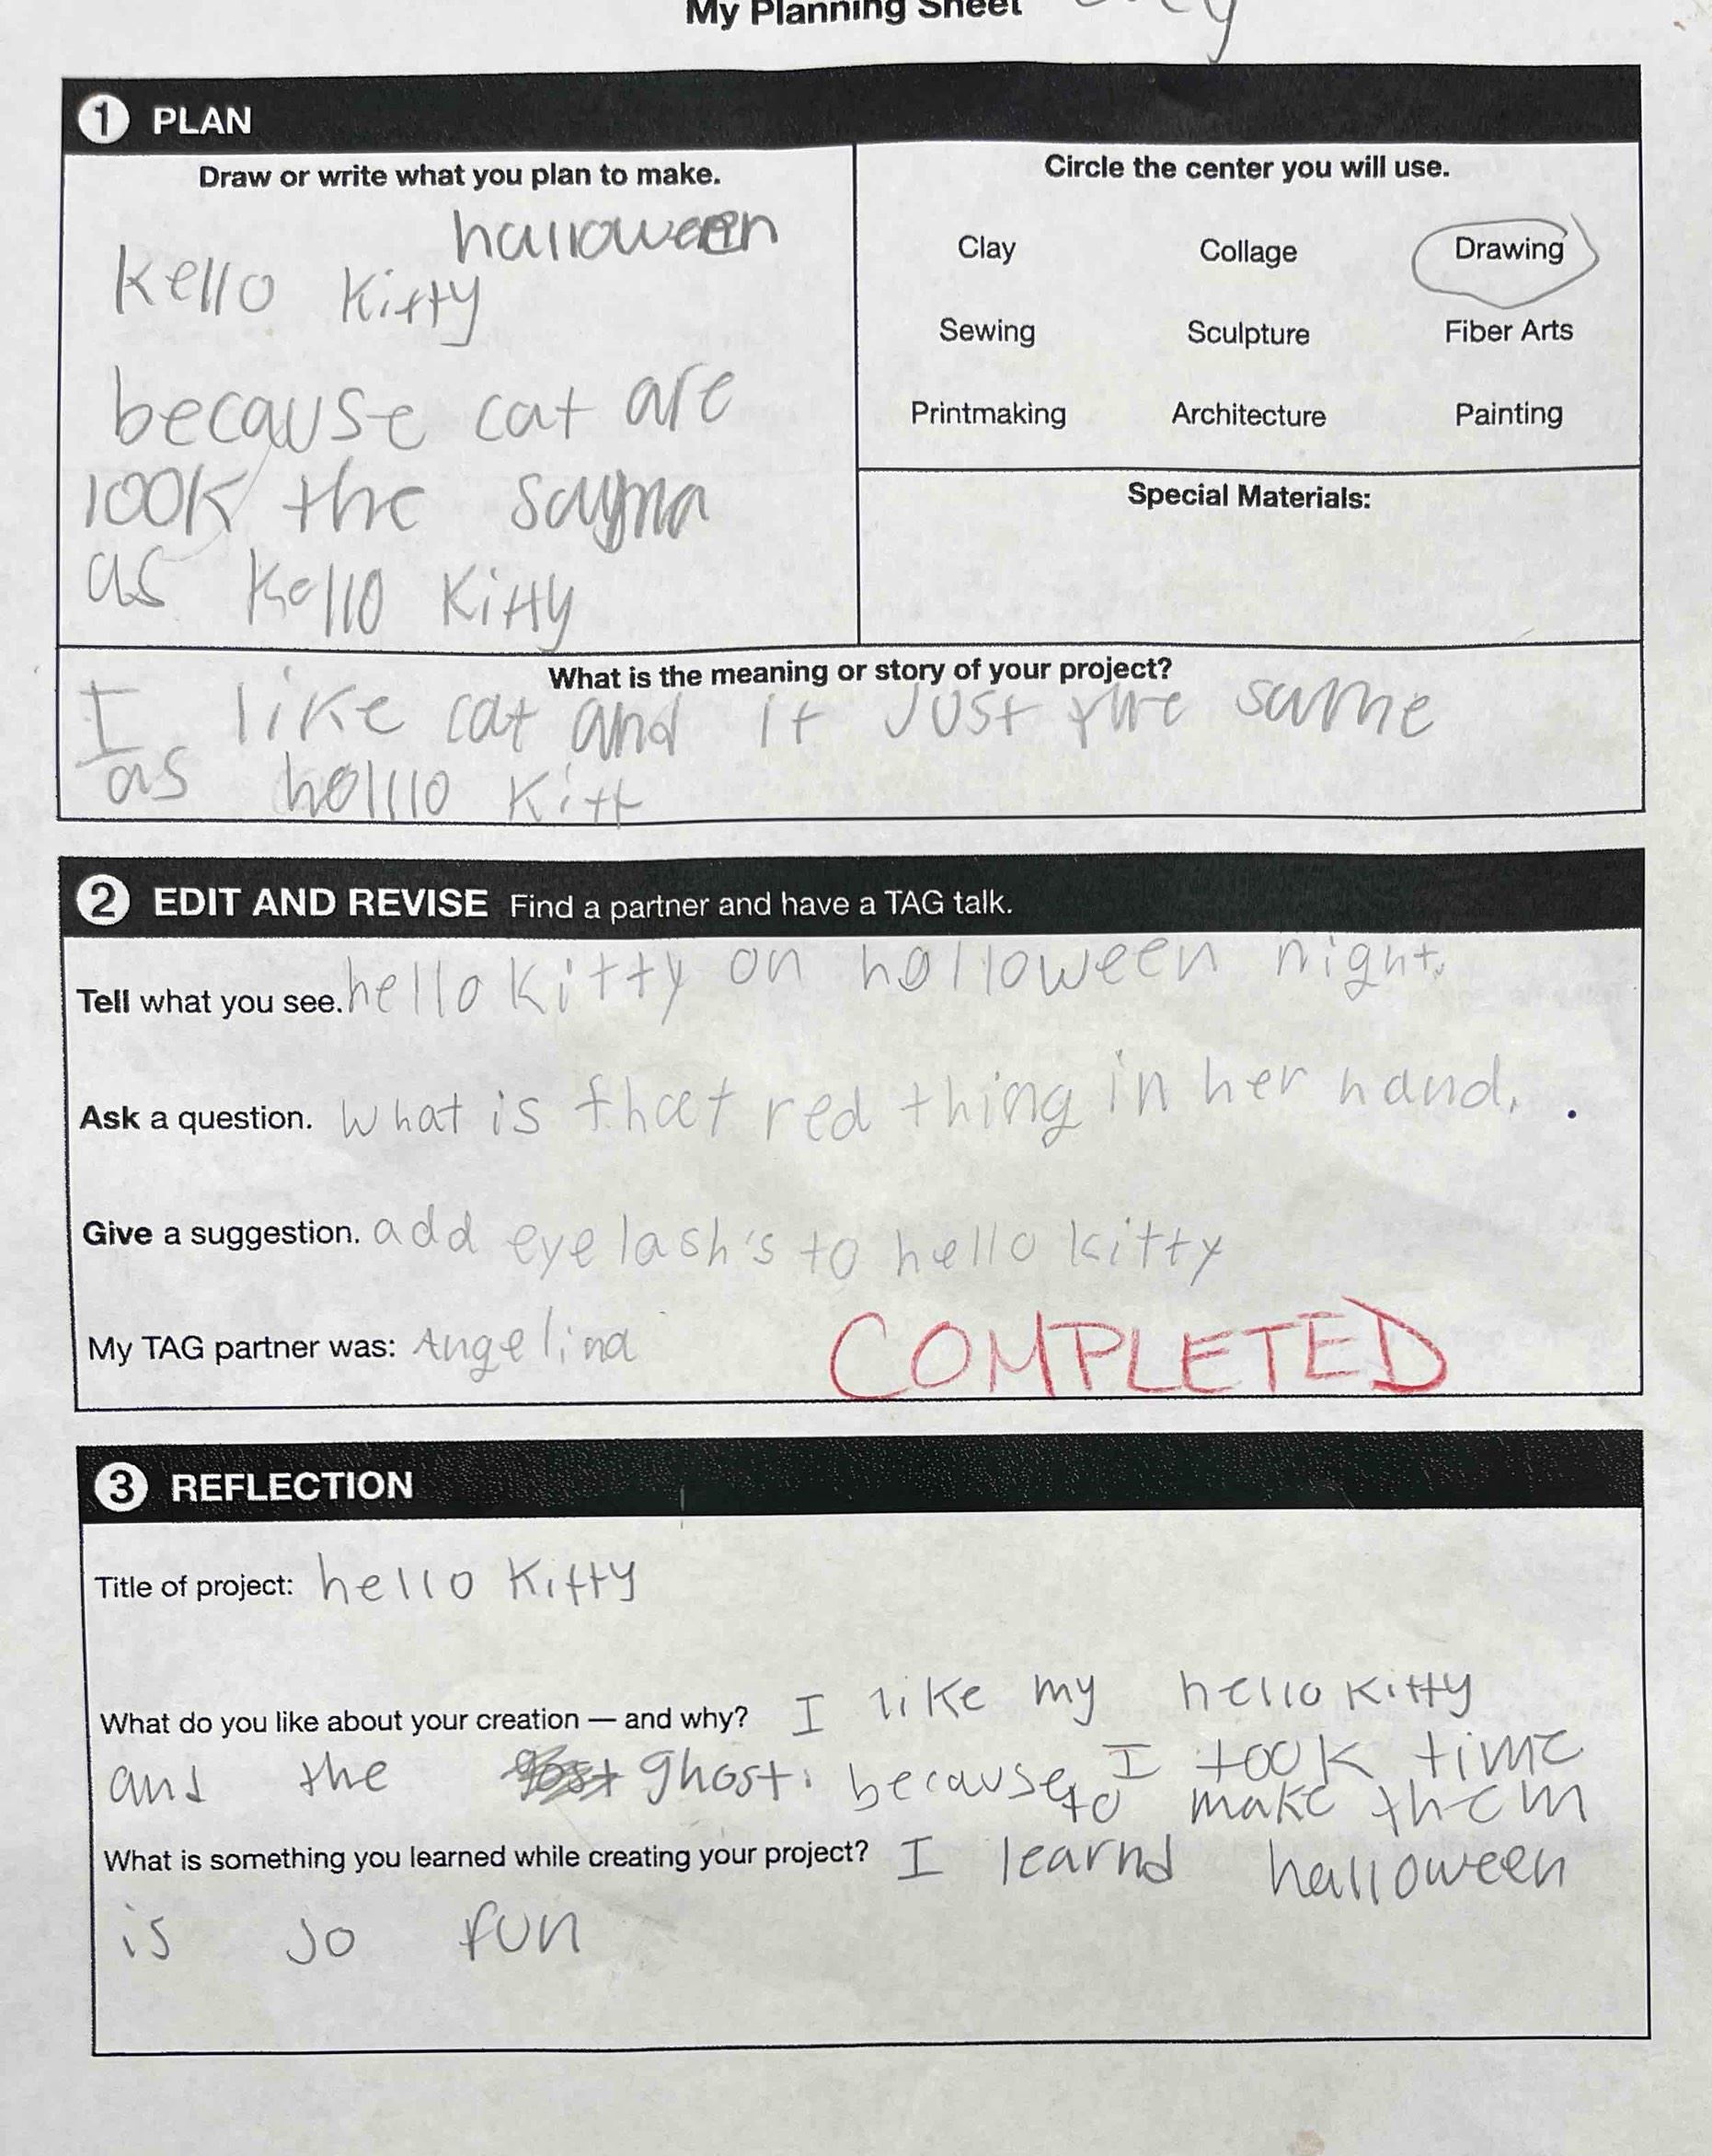 My Planning Sheet
1 PLAN
Draw or write what you plan to make.
halloween
kello kitty
because cat are
look the sayma
as kello kitty
Circle the center you will use.
Clay Collage Drawing
Sewing Sculpture Fiber Arts
Printmaking Architecture Painting
Special Materials:
What is the meaning or story of your project?
I like cat and it just the same
as holllo kitt
2 EDIT AND REVISE Find a partner and have a TAG talk.
Tell what you see. hello kitty on holloween night.
Ask a question. what is that red thing in her hand.
Give a suggestion. add eye lash's to hello kitty
My TAG partner was: Angelina
COMPLETED
3 REFLECTION
Title of project: hello kitty
What do you like about your creation — and why? I like my hello kitty
and the ghost. because I took time
to make them
What is something you learned while creating your project? I learnd halloween
is so fun